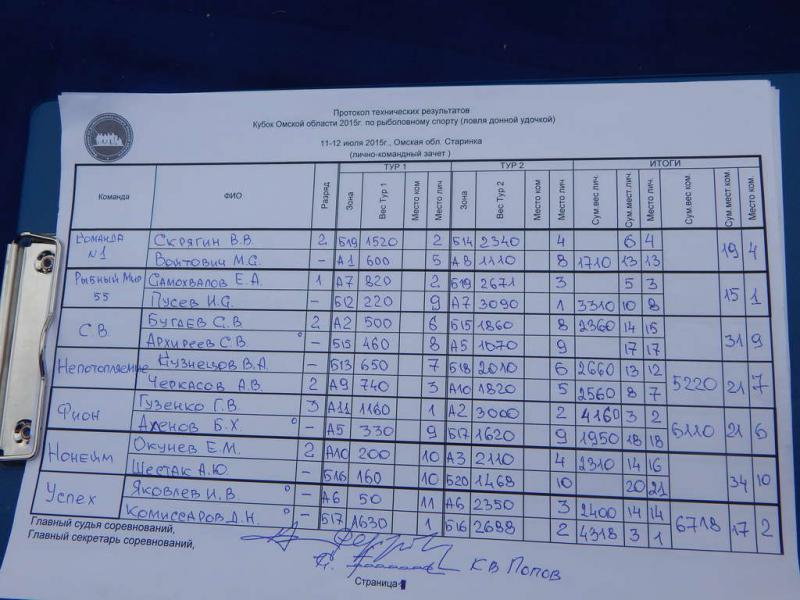 Протокол технических результатов
Кубок Омской области 2015г. по рыболовному спорту (ловля донной удочкой)
11-12 июля 2015г., Омская обл. Старинка
(лично-командный зачет )
ТУР 1 ТУР 2 ИТОГИ
Команда ФИО Разряд Зона Вес Тур 1 Место ком Место лич Зона Вес Тур 2 Место ком Место лич Сум.вес лич. Сум.мест.лич. Место лич. Сум.вес ком Сум.мест.ком. Место ком.
Команда №1 Скрягин В.В. 2 Б19 1520 2 Б14 2340 4 6 4 19 4
Войтович М.С. – А1 600 5 А8 1110 8 1710 13 13
Рыбный Мир 55 Самохвалов Е.А. 1 А7 820 2 Б19 2671 3 5 3 15 1
Пусев И.С. – Б12 220 9 А7 3090 1 3310 10 8
С.В. Бугаев С.В. 2 А2 500 6 Б15 1860 8 2360 14 15 31 9
Архиреев С.В. – Б15 460 8 А5 1070 9 17 17
Непотопляемые Кузнецов В.А. – Б13 650 7 Б18 2010 6 2660 13 12 5220 21 7
Черкасов А.В. 2 А9 740 3 А10 1820 5 2560 8 7
Фион Гузенко Г.В. 3 А11 1160 1 А2 3000 2 4160 3 2 6110 21 6
Б.Х. – А5 330 9 Б17 1620 9 1950 18 18
Нонейм Окунев Е.М. 2 А10 200 10 А3 2110 4 2310 14 16 34 10
Шестак А.Ю. – Б16 160 10 Б20 1468 10 20 21
Успех Яковлев И.В. – А6 50 11 А6 2350 3 2400 14 14 6718 17 2
Комиссаров Д.Н. – Б17 1630 1 Б16 2688 2 4318 3 1
Главный судья соревнований,
Главный секретарь соревнований,
КВ Попов
Страница